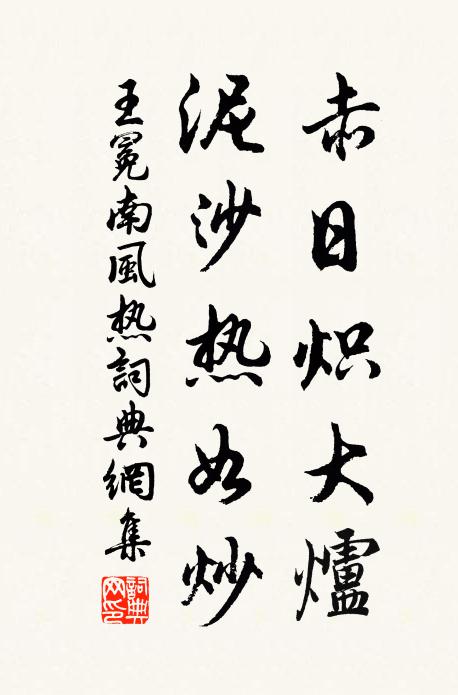 赤日炽大爐
泥沙热如炒
王冕南風热詞典網集
詞典網印